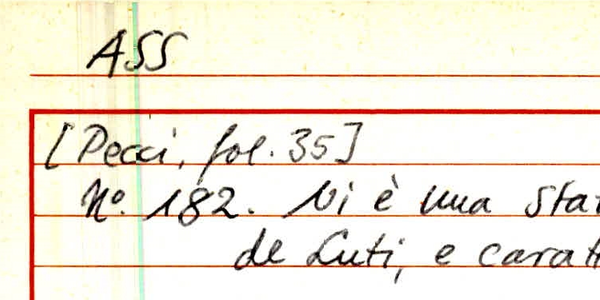 ASS
[Pecci, fol. 35]
N°. 182. Vi è una star
de Luti, e carat